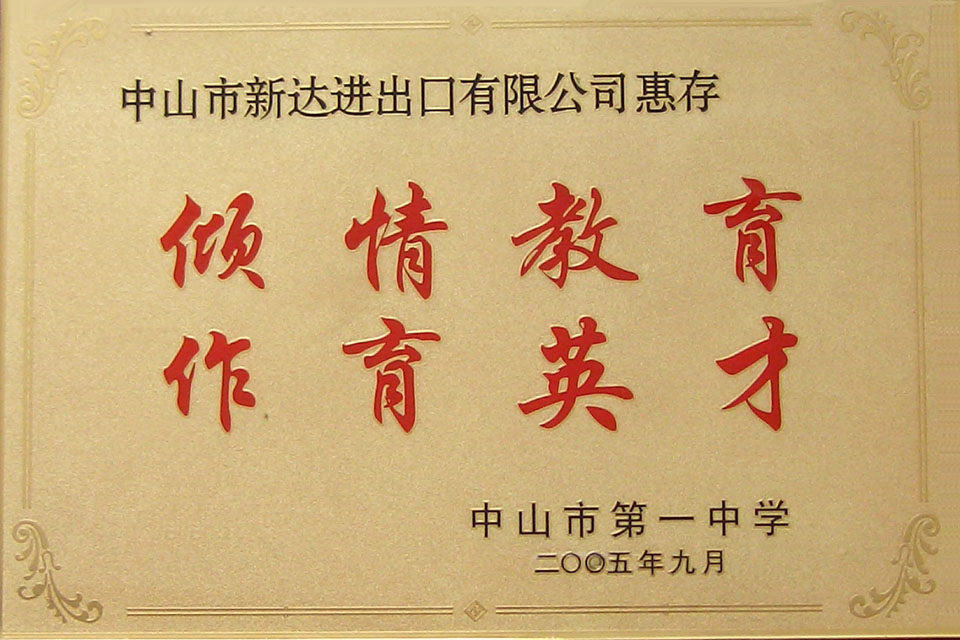 中山市新达进出口有限公司惠存
倾情教育
作育英才
中山市第一中学
二〇〇五年九月